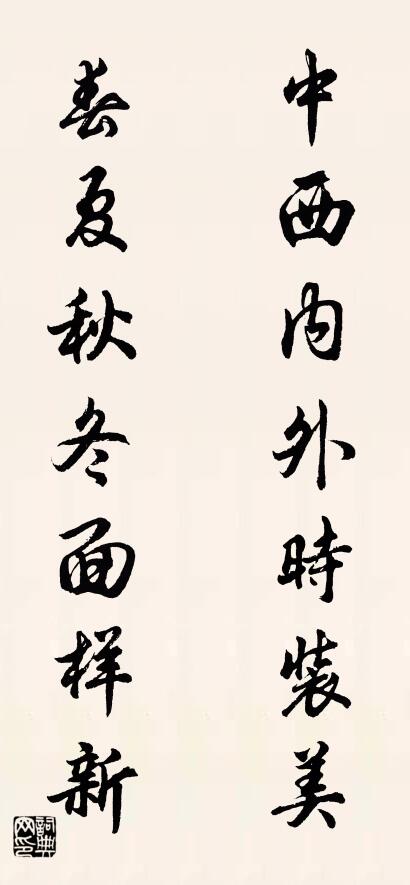 中西内外時裝美
春夏秋冬面样新
詞典网印